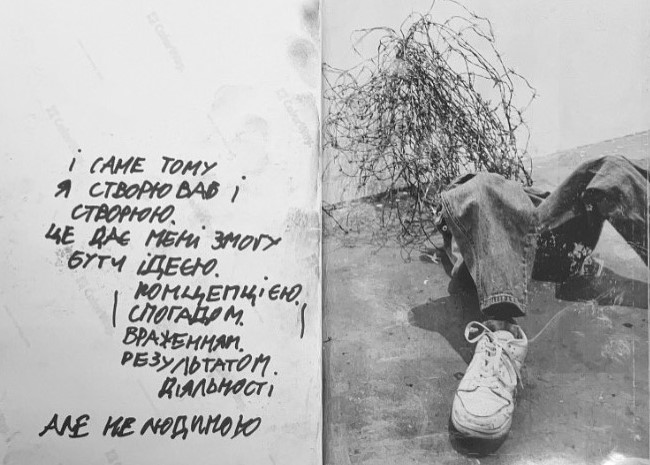 і саме тому
я створював і
створюю.
це дає мені змогу
бути ідеєю.
концепцією.
спогадом.
враженням.
результатом.
діяльності
але не людиною